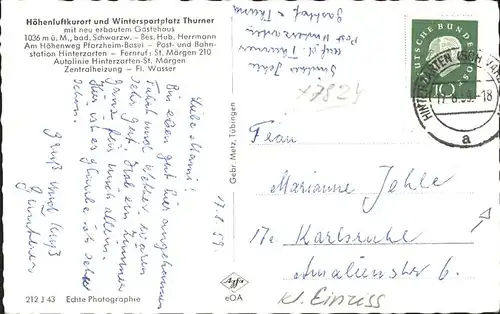 Höhenluftkurort und Wintersportplatz Thurner
mit neu erbautem Gästehaus
1036 m ü. M., bad. Schwarzw. – Bes. Hub. Herrmann
Am Höhenweg Pforzheim-Basel – Post- und Bahn-
station Hinterzarten – Fernruf: St. Märgen 210
Autolinie Hinterzarten-St. Märgen
Zentralheizung – Fl. Wasser
17.8.59.
Liebe Mami!
Bin eben gut hier angekommen
Fahrt und Wetter waren
sehr gut. Hab ein Zimmer
ganz für mich allein.
Hier ist es glaube ich sehr
schön.
Gruß und Kuß
Günther
Günther Jehle
auf d. Thurner
Post Hinterzarten
Gasthof z. Thurner
x7824
Gebr. Metz, Tübingen
DEUTSCHE BUNDESPOST
10
HINTERZARTEN (SCHWARZW)
17.8.59.-18
a
Frau
Marianne Jehle
17a Karlsruhe
Amalienstr 6.
kl. Einriss
eOA
212 J 43 Echte Photographie